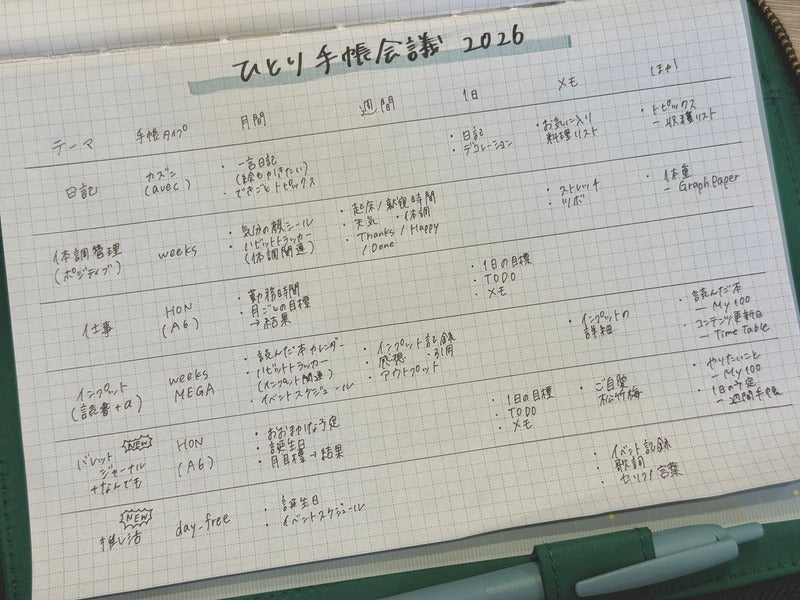 ひとり手帳会議 2026
テーマ 手帳タイプ 月間 週間 1日 メモ ほか
日記
カズン
(avec)
・一言日記
(絵もかきたい)
・できごとトピックス
・日記
・デコレーション
・お気に入り
料理リスト
・トピックス
→収穫リスト
体調管理
(ポジティブ)
weeks
・気分の顔シール
・ハビットトラッカー
(体調関連)
・起床/就寝時間
・天気 ・体調
・Thanks / Happy
/ Done
・ストレッチ
・ツボ
・体重
→ Graph Paper
仕事
HON
(A6)
・勤務時間
・月ごとの目標
→結果
・1日の目標
・TODO
・メモ
インプット
(読書+α)
weeks
MEGA
・読んだ本カレンダー
・ハビットトラッカー
(インプット関連)
・イベントスケジュール
・インプット記録
・感想 ・引用
・アウトプット
・インプットの
詳細
・読んだ本
→ My 100
・コンテンツ更新日
→ Time Table
バレット NEW
ジャーナル
+なんでも
HON
(A6)
・おおまかな予定
・誕生日
・月目標→結果
・1日の目標
・TODO
・メモ
・ご自愛
松竹梅
・やりたいこと
→ My 100
・1日の予定
→週間手帳
NEW
推し活
day-free
・誕生日
・イベントスケジュール
・イベント記録
・歌詞
・セリフ/言葉